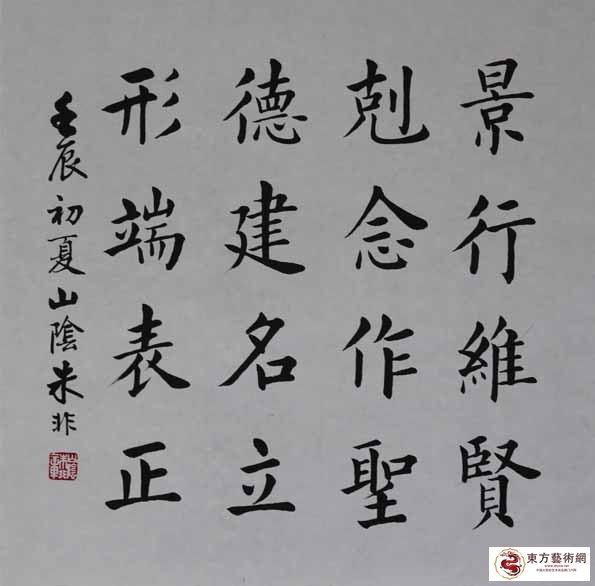 景行維賢
剋念作聖
德建名立
形端表正
壬辰初夏山陰朱非
東方藝術網